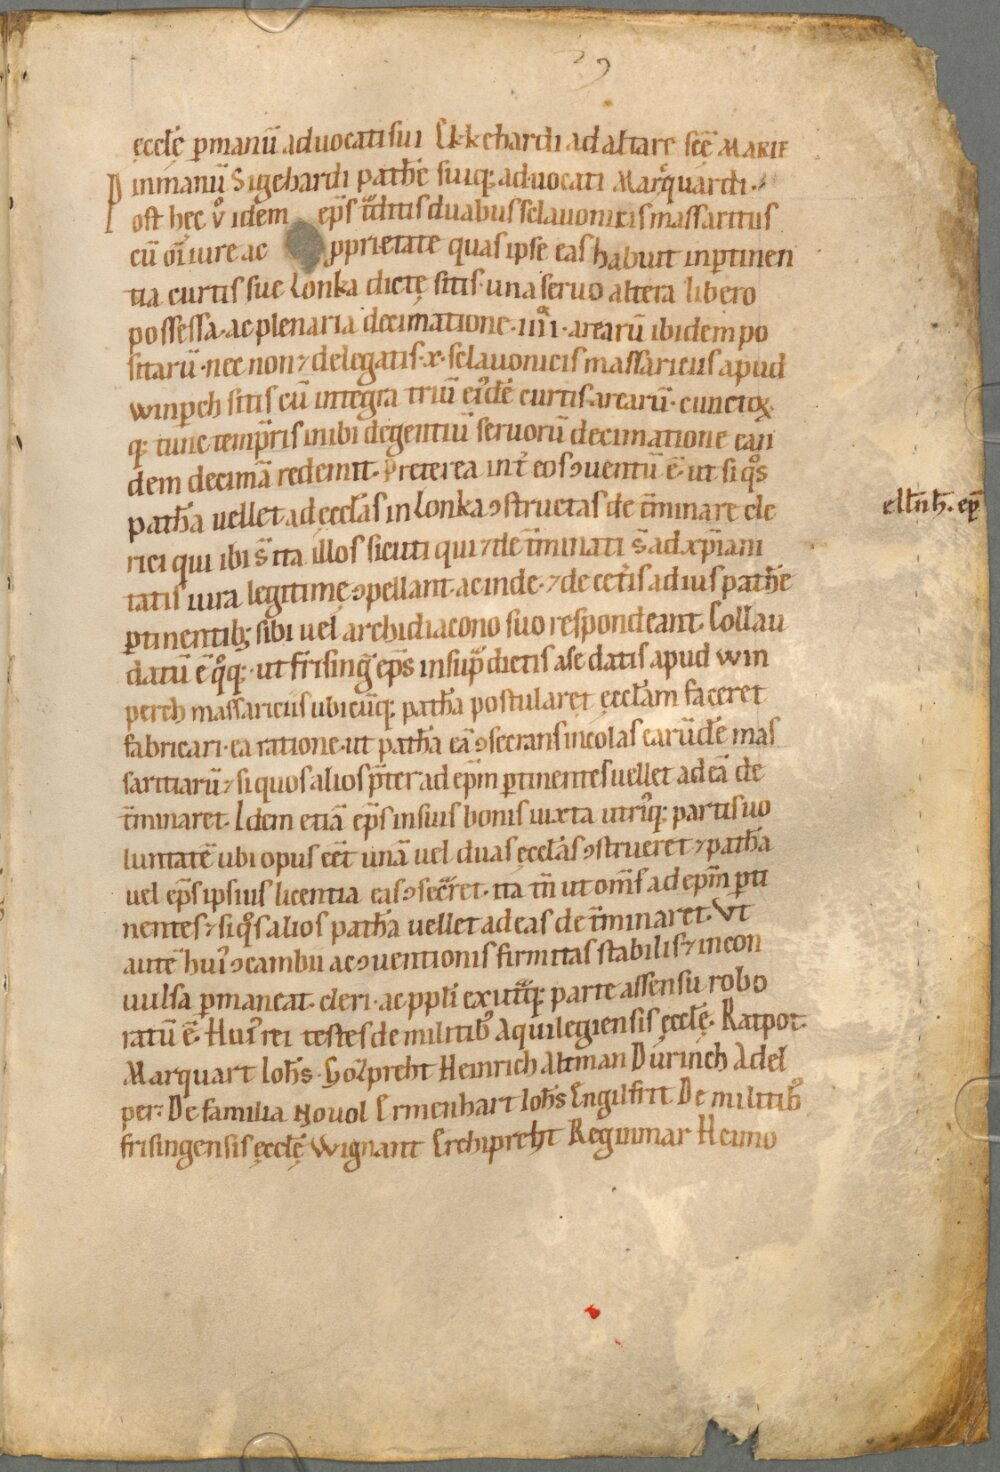 ęccłę ꝑmanū aduocati sui Ekkehardi ad altare scē MARIE
inmanū Sigehardi patħe suiq; aduocati Marquardi.
Post hęc v̊ idem ep̄s t̄ditis duabus sclauonicis massaritiis
cū om̄i iure ac ꝓprietate quas ipse eas habuit inꝑtinen
tia curtis sue Lonka dictę sitis. una seruo altera libero
possessa. ac plenaria decimatione. iiii. arearū ibidem po
sitarū. nec non ⁊ delegatis .x. sclauonicis massariciis apud
winꝑch sitis cū integra triū ei᷒dē curtis arearū. cunctoꝝ
q; tunc temp̄ris inibi degentiū seruorū decimatione ean
dem decimā redemit. Preterea int̄ eos ꝯuentū ē. ut siq̊s
patħa uellet ad ęccłas in Lonka ꝯstructas de t̄minare cle
rici qui ibi s̄ ita illos sicuti qui ⁊ de t̄minati s̄ ad xp̄iani
tatis iura legitimę ꝯpellant. ac inde. ⁊ de cet̄is ad ius patħe
ꝑtinentib; sibi uel archidiacono suo respondeant. Collau
datū ē q̊q;. ut frisinḡ ep̄s insup̄dictis a se datis apud win
perch massariciis ubicūq; patħa postularet ęccłam faceret
fabricari. ea ratione. ut patħa eā ꝯsecrans incolas earūdē mas
saritiarū ⁊ si quos alios p̄ter ad ep̄m ꝑtinentes uellet ad eā de
t̄minaret. Idem etiā ep̄s insuis bonis iuxta utri᷒q; partis uo
luntatē ubi opus eēt unā uel duas ęccłas ꝯstrueret ⁊ patħa
uel ep̄s ipsius licentia eas ꝯsec̄ret. ita tn̄ ut om̄s ad ep̄m ꝑti
nentes ⁊ siq̊s alios patħa uellet ad eas de t̄minaret. Vt
autē hui᷒ ꝯcambii ac ꝯuentionis firmitas stabilis ⁊ incon
uulsa ꝑmaneat. cleri. ac ppłi ex ut̄q; parte assensu robo
ratū ē. Hui᷒ rei testes de militib᷒ Aquilegiensis ęccłę. Ratpot
Marquart Ioħs. Golpreht Heinrich Altman Durinch Adel
per. De familia Nouol Ermenhart Ioħs Engilfrit De militib᷒
frisingensis ęccłę Wignant Erchipreht Reginmar Heimo
ellnħ. ep̄